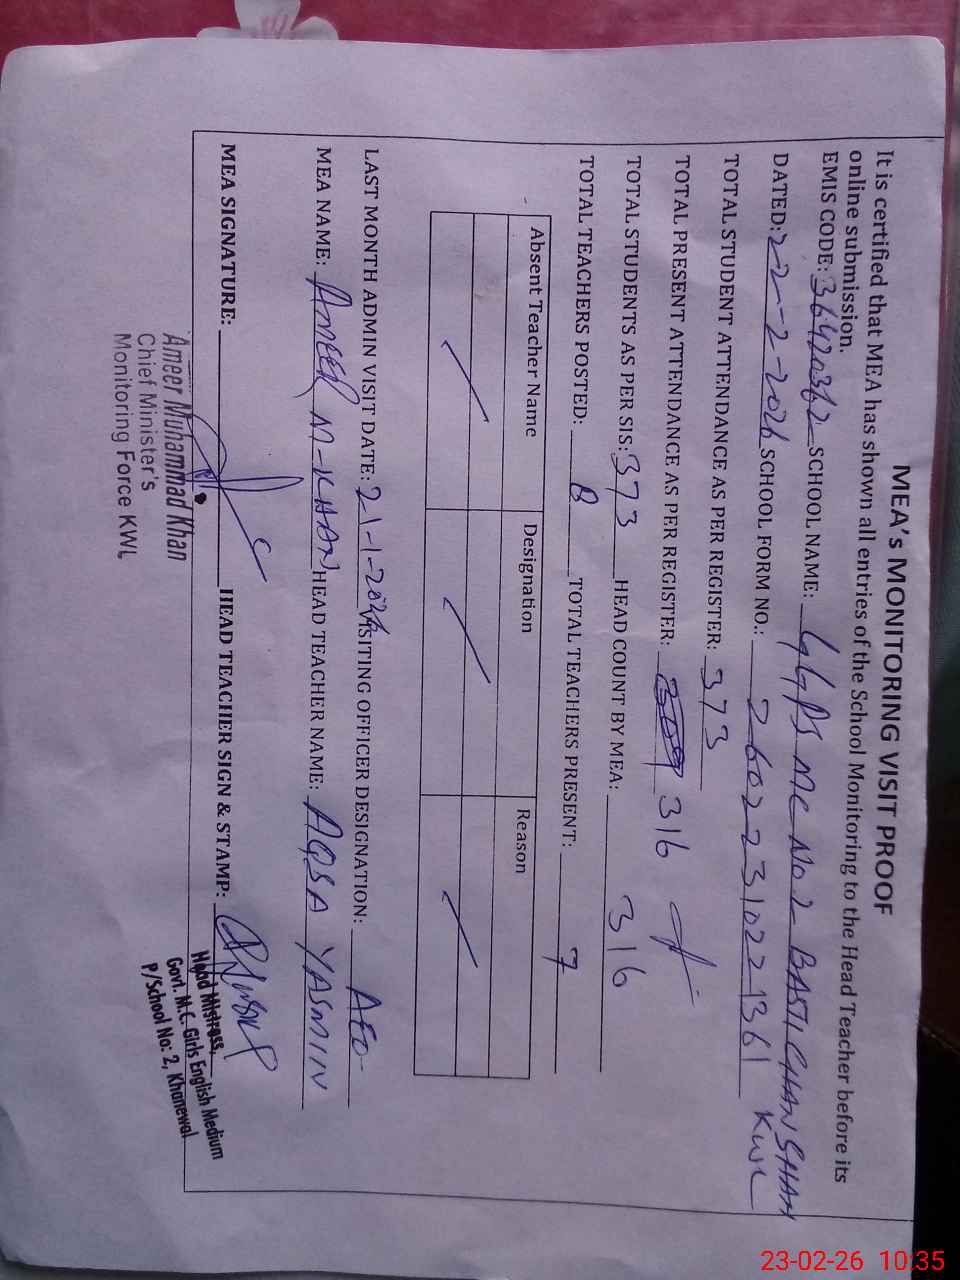 MEA's MONITORING VISIT PROOF
It is certified that MEA has shown all entries of the School Monitoring to the Head Teacher before its
online submission.
EMIS CODE: 36420362 SCHOOL NAME: GGPS MC No 2 BASTI CHAN SHAH
KWL
DATED: 22-2-2026 SCHOOL FORM NO.: 26022310221361
TOTAL STUDENT ATTENDANCE AS PER REGISTER: 373
TOTAL PRESENT ATTENDANCE AS PER REGISTER: 316
TOTAL STUDENTS AS PER SIS: 373 HEAD COUNT BY MEA: 316
TOTAL TEACHERS POSTED: 8 TOTAL TEACHERS PRESENT: 7
Absent Teacher Name Designation Reason
LAST MONTH ADMIN VISIT DATE: 21-1-2026 VISITING OFFICER DESIGNATION: AEO
MEA NAME: AMEER M-KHAN HEAD TEACHER NAME: AQSA YASMIN
MEA SIGNATURE: HEAD TEACHER SIGN & STAMP:
Ameer Muhammad Khan
Chief Minister's
Monitoring Force KWL
Head Mistress,
Govt. M.C. Girls English Medium
P/School No: 2, Khanewal
23-02-26 10:35